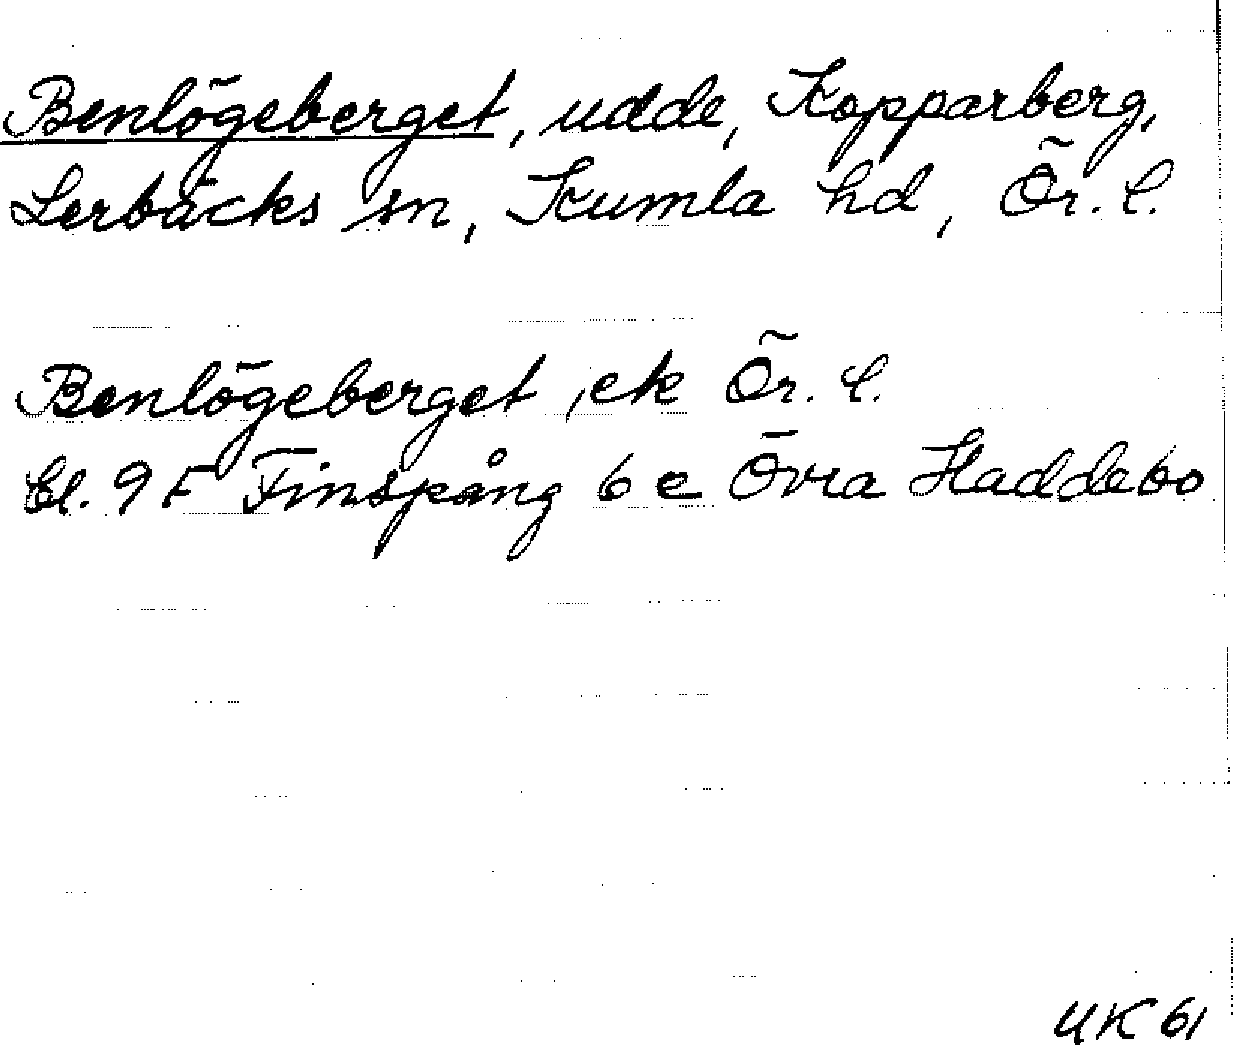 Benlögeberget, udde, Kopparberg,
Lerbäcks sn, Kumla hd, Ör. l.
Benlögeberget, ek Ör. l.
bl. 9 F Finspång 6 e Övra Haddebo
UK 61